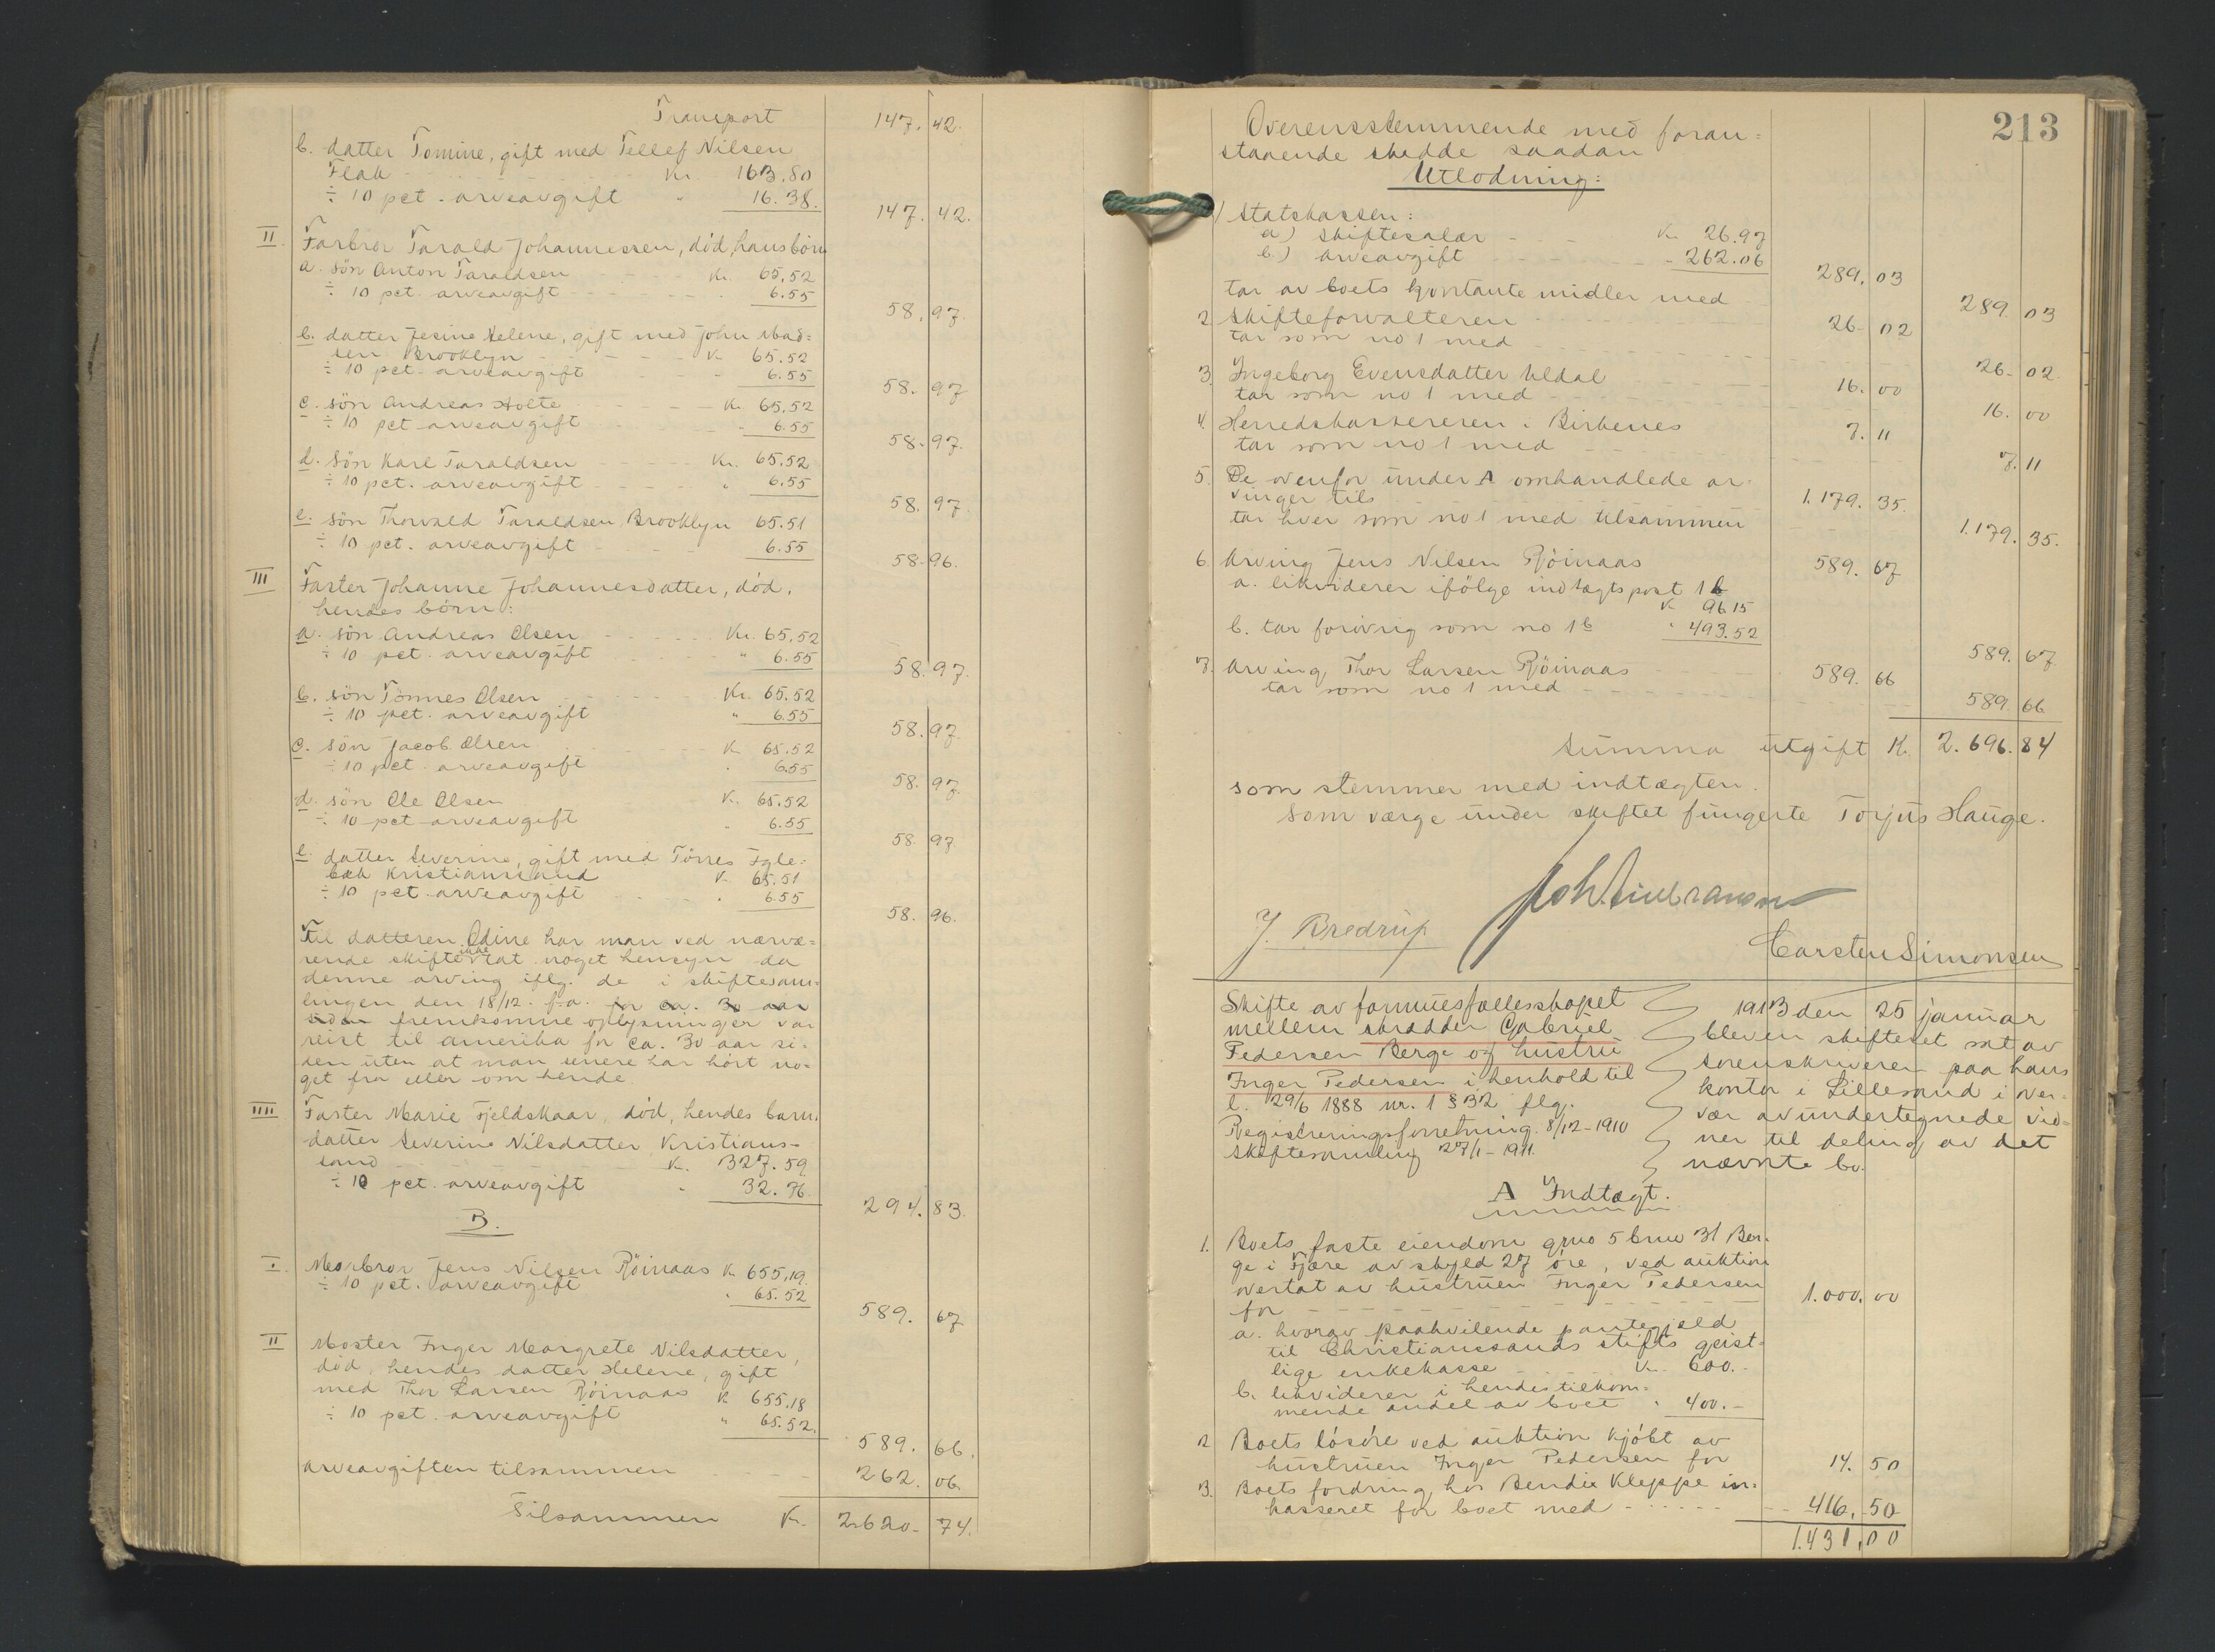 Transport 147. 42.
b. datter Tomine, gift med Tellef Nilsen
Flak Kr. 163.80
÷ 10 pct. arveavgift " 16.38. 147. 42.
II Farbror Tarald Johannessen, död, hans börn
a. sön Anton Taraldsen Kr. 65.52
÷ 10 pct. arveavgift 6.55 58. 97.
b. datter Jesine Helene, gift med John Mad=
sen Brooklyn K. 65.52
÷ 10 pct. arveavgift 6.55 58. 97
c. sön Andreas Holte K. 65.52
÷ 10 pct arveavgift 6.55 58. 97.
d. sön Karl Taraldsen Kr. 65.52
÷ 10 pct. arveavgift 6.55 58. 97
e. sön Thorvald Taraldsen, Brooklyn 65.51
÷ 10 pct. arveavgift 6.55 58. 96.
III Faster Johanne Johannesdatter, död,
hendes börn:
a. sön Andreas Olsen Kr. 65.52
÷ 10 pct. arveavgift " 6.55 58. 97.
b. sön Tönnes Olsen Kr. 65.52
÷ 10 pct. arveavgift " 6.55 58. 97.
c. sön Jacob Olsen K. 65.52
÷ 10 pct arveavgift 6.55 58. 97.
d. sön Ole Olsen K. 65.52
÷ 10 pct arveavgift 6.55 58. 97
e. datter Severine, gift med Törres Igle=
bæk Kristianssand K. 65.51
÷ 10 pct. arveavgift 6.55 58. 96.
Til datteren Odine har man ved nærvæ=
rende skifte ikke tat noget hensyn da
denne arving iflg. de i skiftesam=
lingen den 18/12. f.a. for ca. 30 aar
siden fremkomne oplysninger var
reist til Amerika for ca. 30 aar si=
den uten at man senere har hört no=
get fra eller om hende.
IIII Faster Marie Fjeldskaar, död, hendes barn:
datter Severine Nilsdatter Kristians=
sand K. 327.59
÷ 10 pct. arveavgift 32.76 294. 83.
B.
I. Morbror Jens Nilsen Röinaas K. 655,19
÷ 10 pct. arveavgift " 65.52 589. 67
II Moster Inger Margrete Nilsdatter,
död, hendes datter Helene, gift
med Thor Larsen Röinaas K 655.18
÷ 10 pct. arveavgift " 65.52. 589. 66.
Arveavgiften tilsammen 262. 06.
Tilsammen K. 2.620. 74.
213
Overensstemmende med foran=
staaende skedde saadan
Utlodning:
1) Statskassen:
a) skiftesalær K. 26.97
b.) arveavgift 262.06 289. 03
tar av boets kontante midler med 289. 03
2. Skifteforvalteren 26. 02
tar som no 1 med 26. 02.
3. Ingeborg Evensdatter Uldal 16. 00
tar som no 1 med 16. 00
4. Herredskassereren i Birkenes 7. 11
tar som no 1 med 7. 11
5. De ovenfor under A omhandlede ar=
vinger tils 1.179. 35.
tar hver som no 1 med tilsammen 1.179. 35.
6. Arving Jens Nilsen Röinaas 589. 67
a. likviderer ifölge indtægtspost 1 b
K 96 15
b. tar forövrig som no 1 b " 493.52 589. 67
7. Arving Thor Larsen Röinaas 589. 66
tar som no 1 med 589. 66
Summa utgift K. 2.696. 84
som stemmer med indtægten.
Som værge under skiftet fungerte Torjus Hauge.
J. Bredrup
Carsten Simonsen
Skifte av formuesfællesskapet
mellem skrædder Gabriel
Pedersen Berge og hustru
Inger Pedersen i henhold til
l. 29/6 1888 nr. 1 § 32 flg.
Registreringsforretning 8/12-1910
Skiftesamling 27/1-1911.
1913 den 25 januar
bleven skifteret sat av
sorenskriveren paa hans
kontor i Lillesand i over=
vær av undertegnede vid=
ner til deling av det
nævnte bo.
A Indtægt.
1. Boets faste eiendom gnr 5 bnr 31 Ber=
ge i Fjære av skyld 27 öre, ved auktion
overtat av hustruen Inger Pedersen
for 1.000. 00
a. hvorav paahvilende pantegjeld
til Christianssands stifts geist=
lige enkekasse K. 600.-
b. likviderer i hendes tilkom=
mende andel av boet " 400.-
2. Boets lösöre ved auktion kjöbt av
hustruen Inger Pedersen for 14. 50
3. Boets fordring hos Bendix Kleppe in=
kasseret for boet med 416. 50
1.431,00